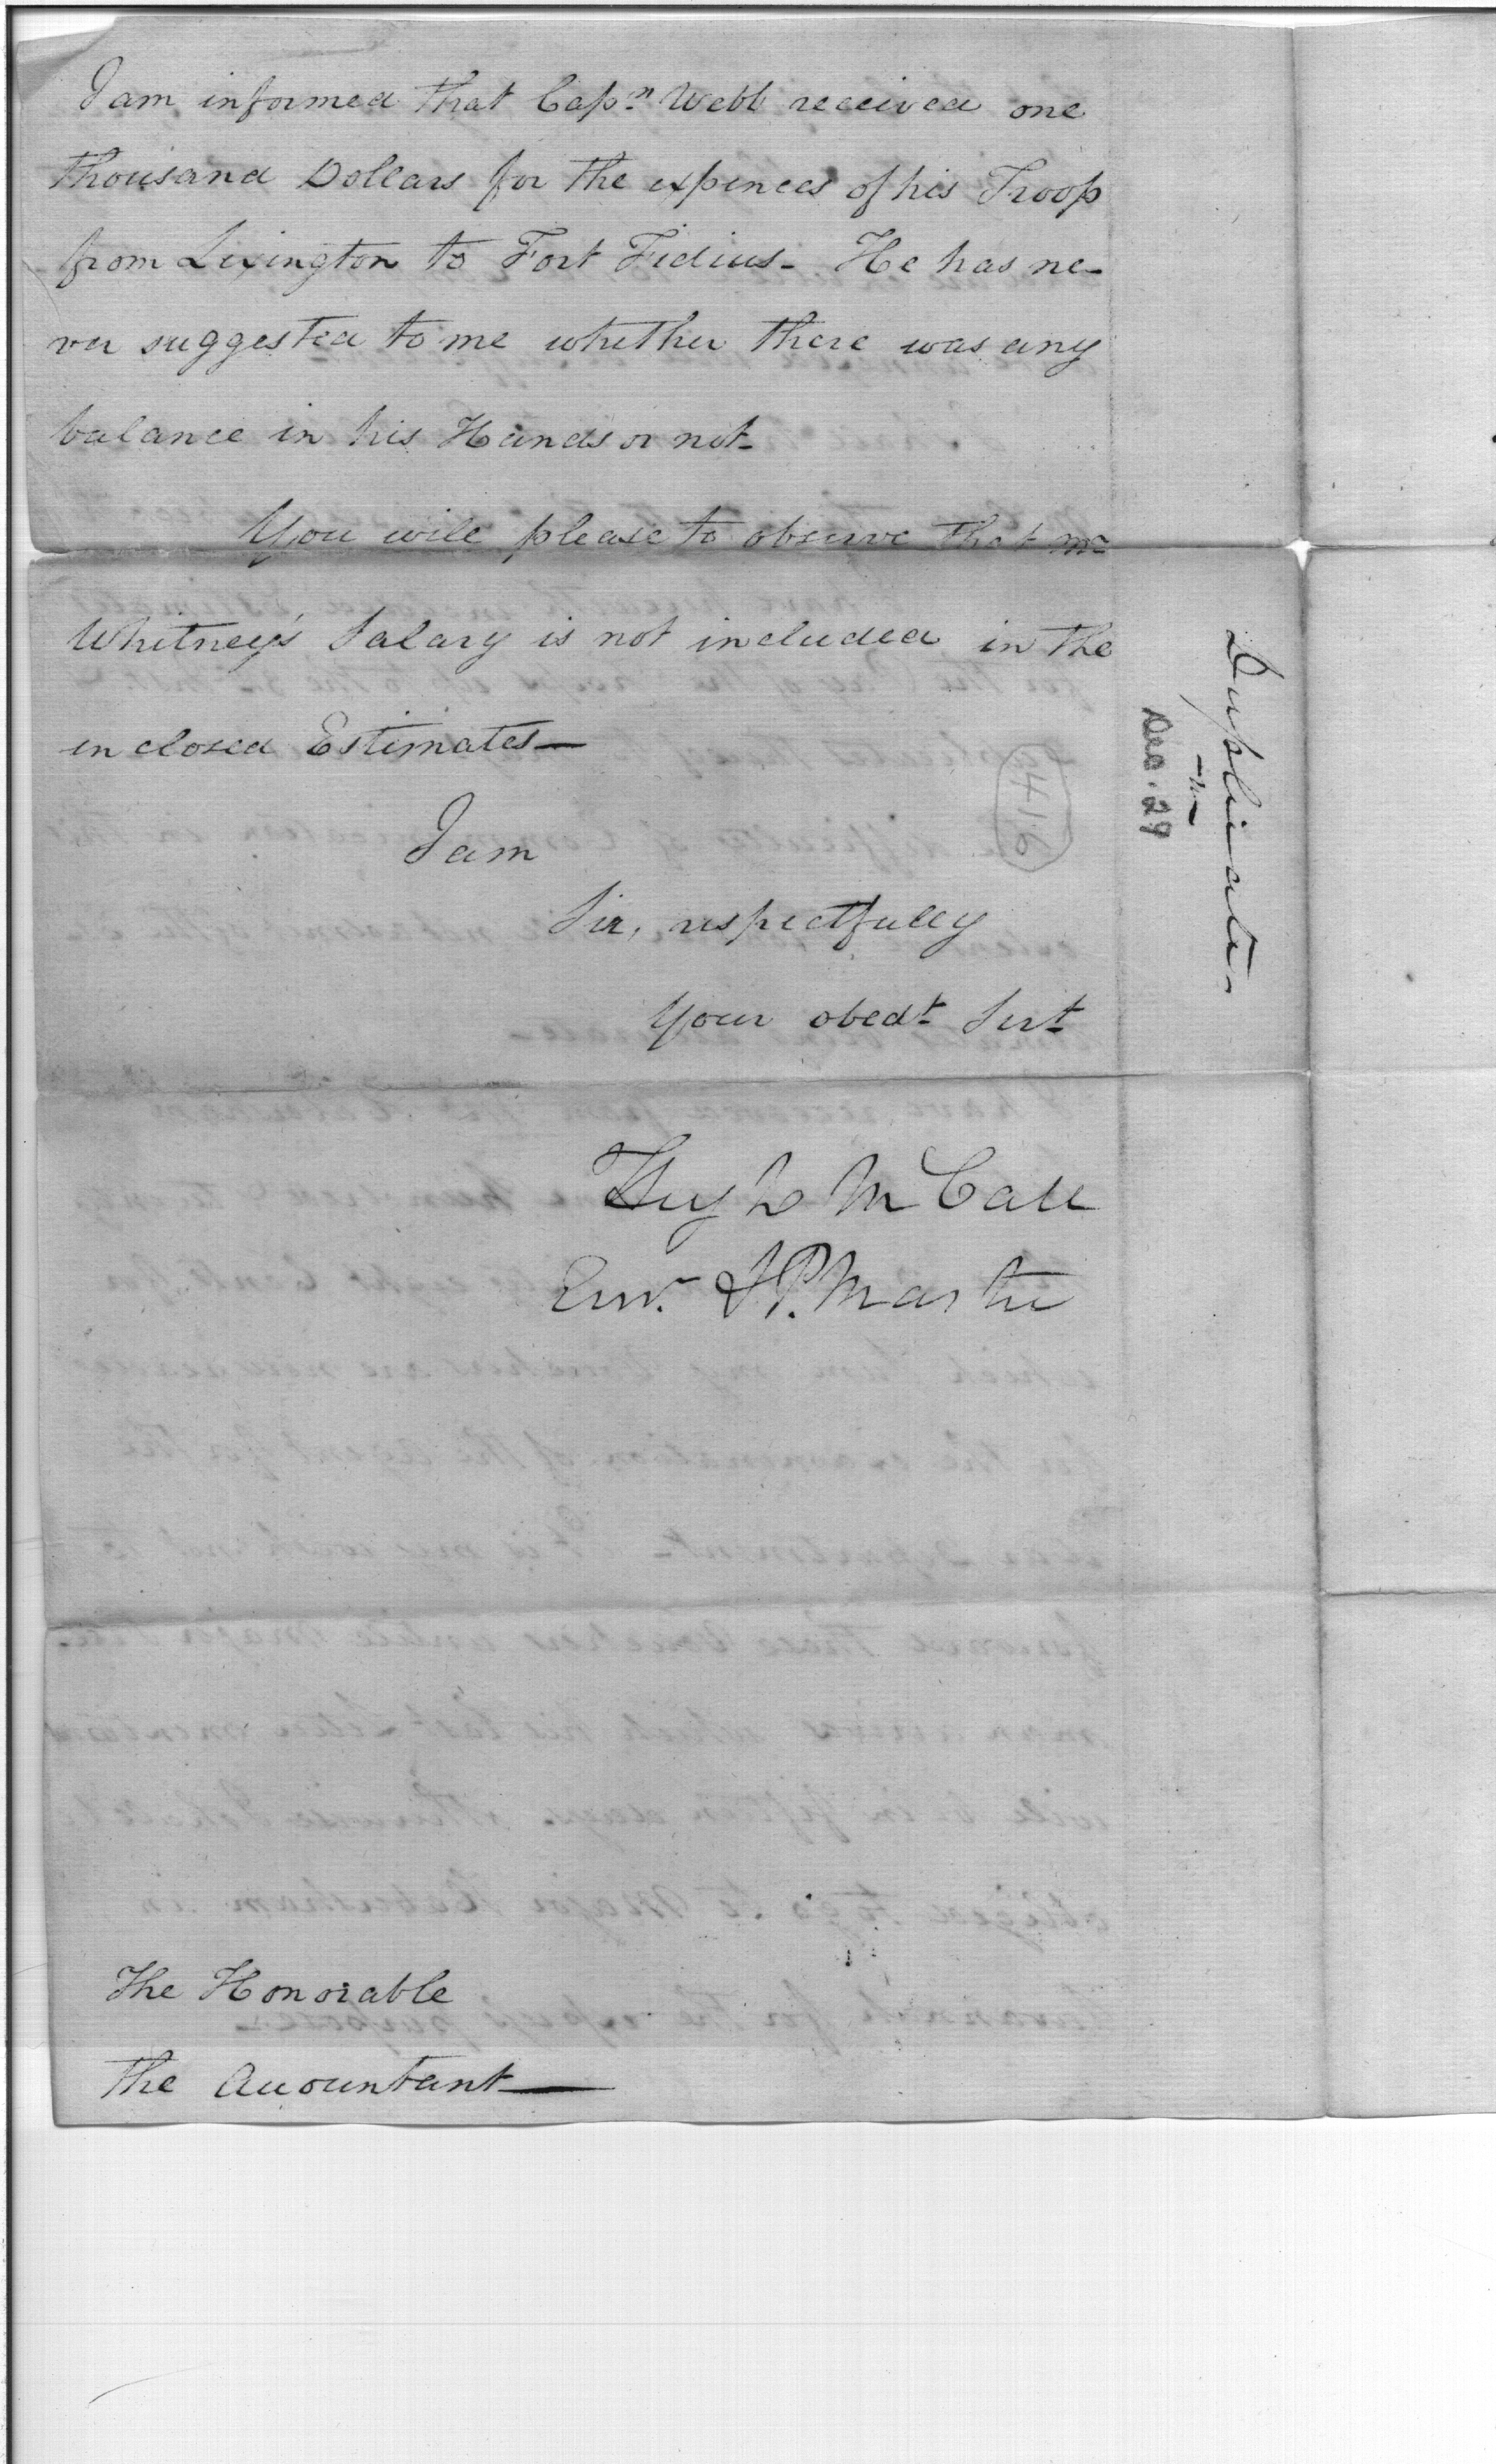 I am informed that Capn. Webb received one
thousand Dollars for the expences of his Troop
from Lexington to Fort Fidius- He has ne-
ver suggested to me whether there was any
balance in his Hands or not-
You will please to observe that Mr
Whitney's Salary is not included in the
enclosed Estimates—
I am
Sir, respectfully
Your obedt Servt
Hugh McCall
P. Master
The Honorable
The Accountant—
Duplicates
Dec. 29
416